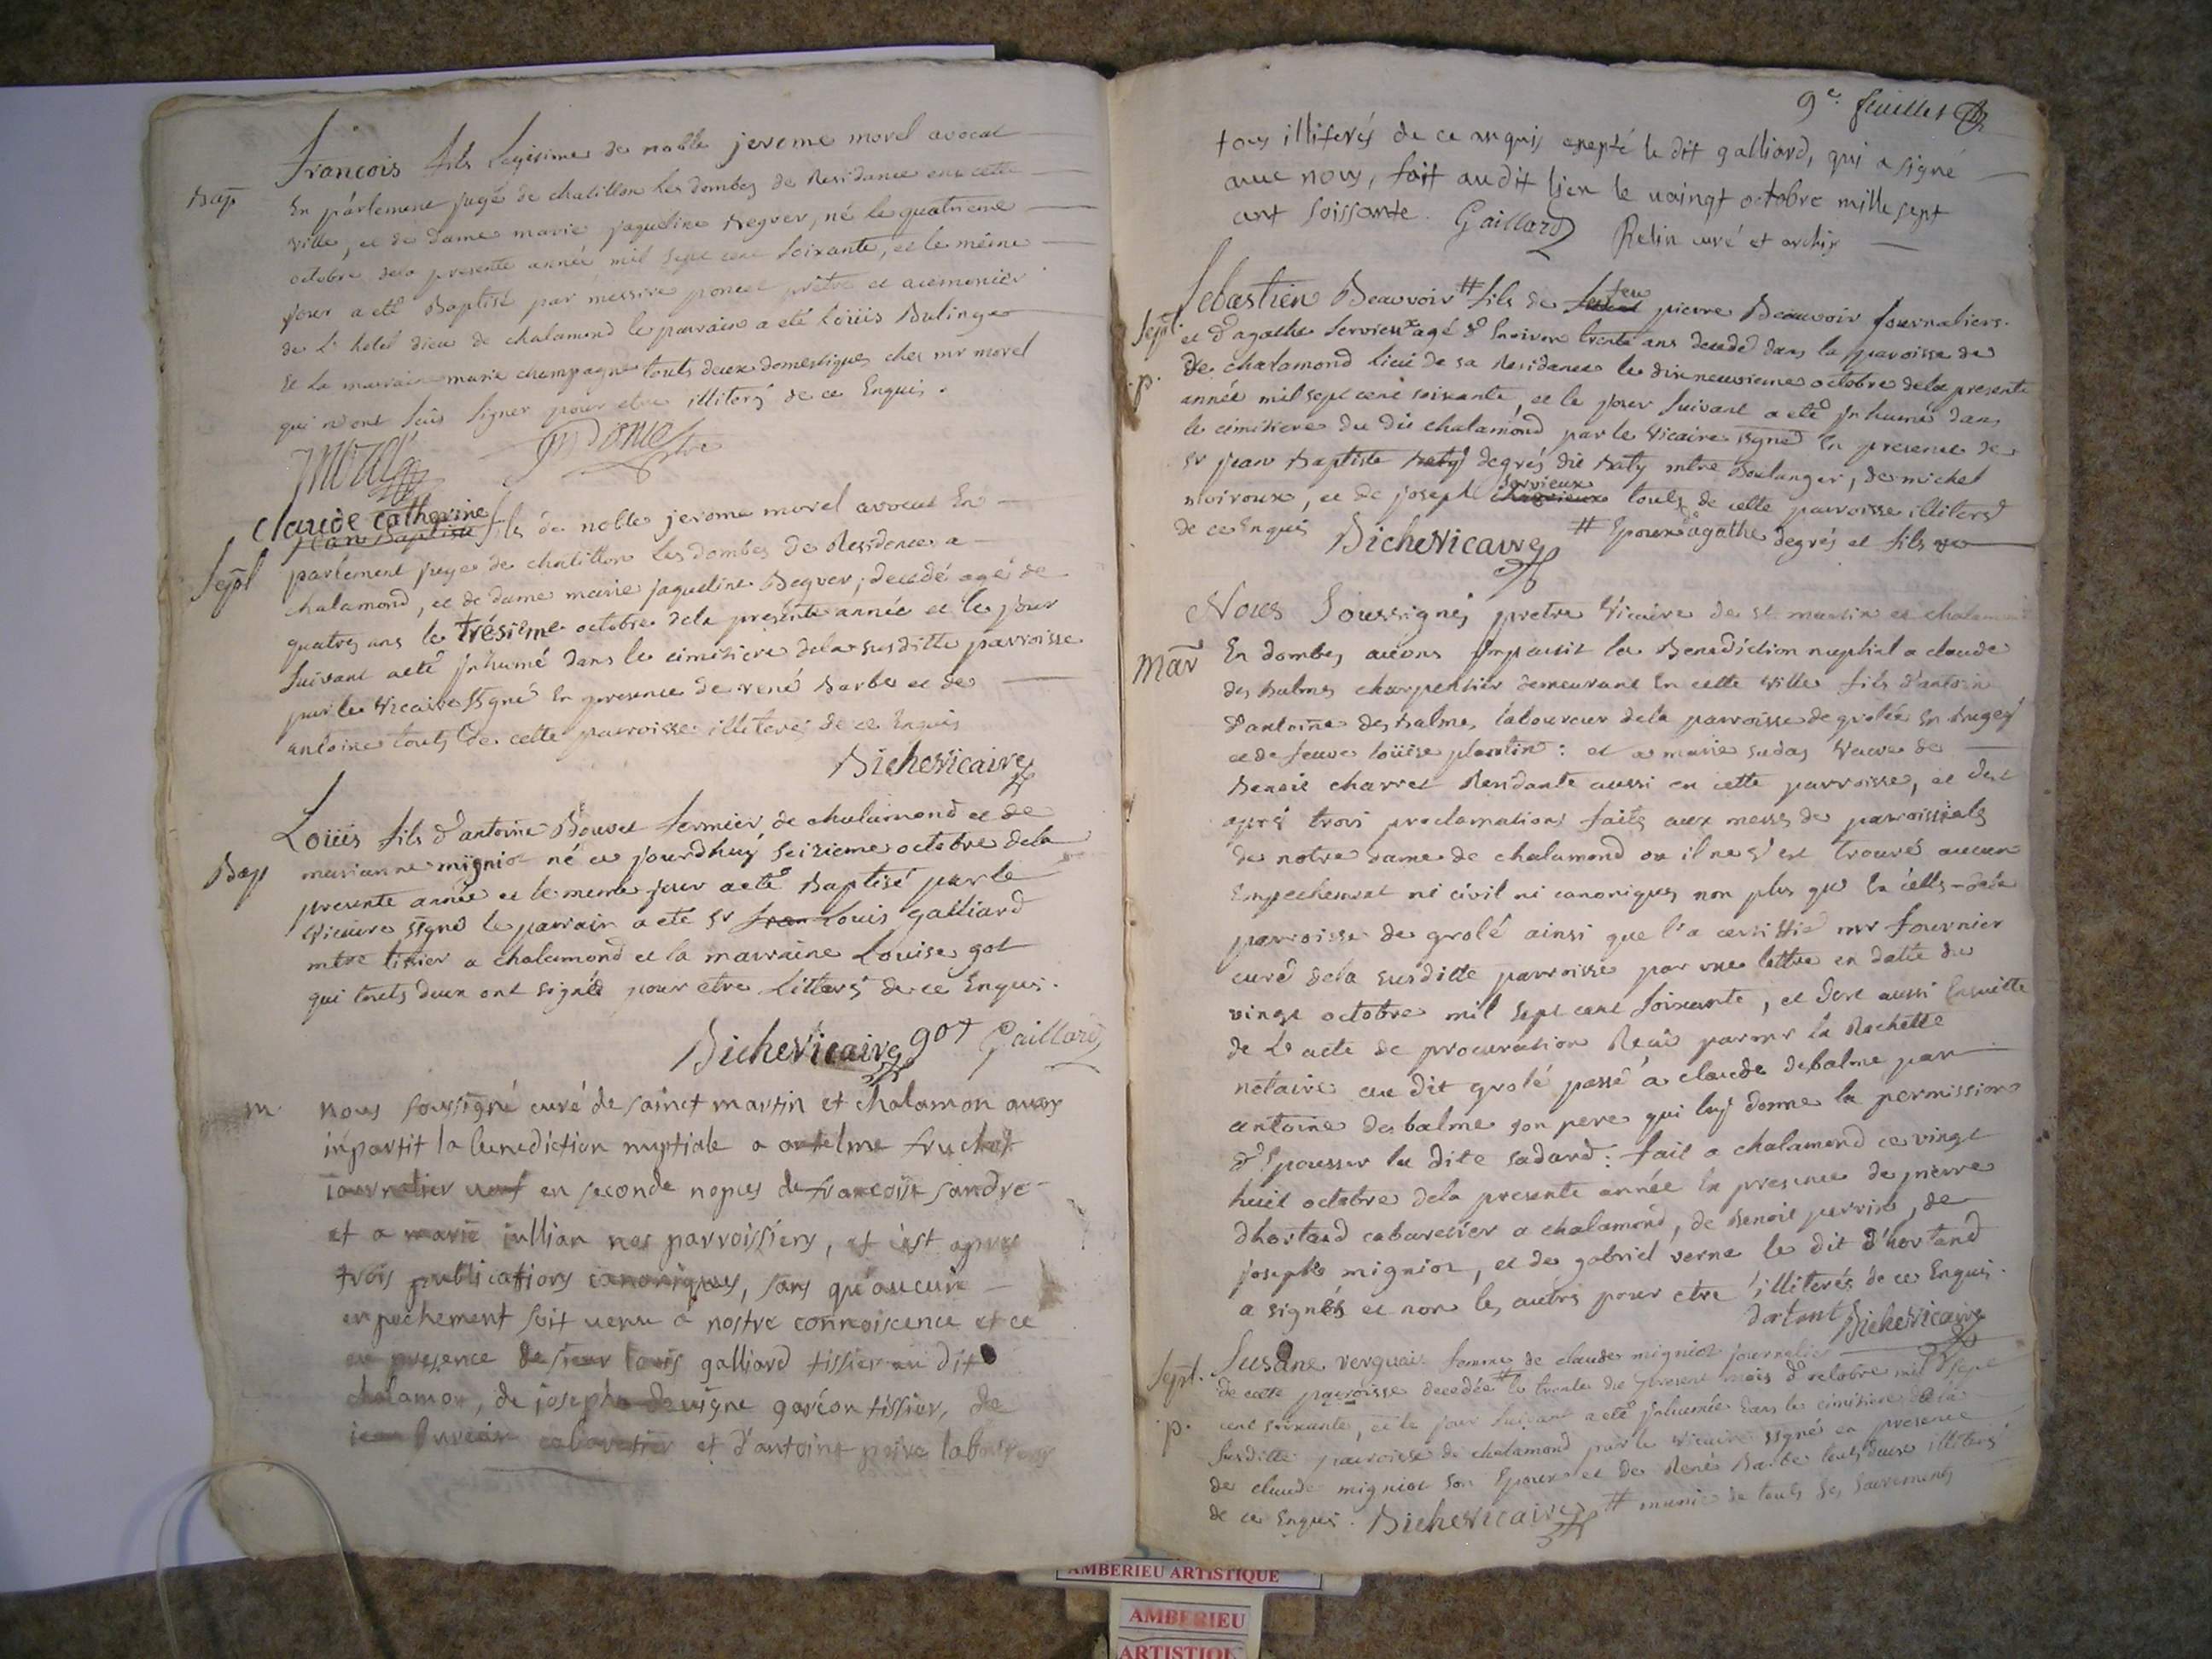 françois fils Legitime de noble jerome morel avocat
Bap
En párlement jugé de chatillon Les dombes de Residance ene cette
ville, et de dame marie jaqueline Begver, né le quatrieme
octobre dela presente année mil sept cent soixante, et le même
jour a eté Baptisé par messire poncet prêtre et aumonier
de L'hotel dieu de chalamond le parrain a eté Loüis Bulinge
Et La marraine marie champagne touts deux domestiques ches mr morel
qui n'ont sçûs signer pour etre illiterés de ce Enquis.
Morel
claude Catherine
jean Baptiste fils de noble jerome morel avocat En
Sepl
parlement juge de chatillon Les dombes de Residence a
chalamond, et de dame marie jaqueline Begver, decedé agé de
quatres ans le trésieme octobre dela presente année et le jour
suivant a eté jnhumé dans le cimitiere dela susditte parroisse
par le vicaire ssigné En presence de rené Barbe et de
antoine touts de cette parroisse illiteres de ce Enquis
Biche vicaire
Loüis fils d'antoine Bouvet fermier de chalamond et de
Bap
marianne migniot né ce jourdhuy seizieme octobre dela
presente année et le meme jour a eté Baptisé par le
vicaire ssigné le parrain a eté sr jean Louis galliard
mtre tissier a chalamond et la marraine Louise got
qui touts deux ont signés pour etre Litterés de ce Enquis.
Biche vicaire got Gaillard
m
nous soussigné curé de sainct martin et chalamon avons
inpartit la benediction nuptiale a antelme fruchet
iournalier veuf en seconde nopces de françoise sandre
et a marie iullian nos parroissiens, et c'est apres
trois publications canoniques, sans qu'aucun
enpechement soit venu a nostre connoiscence et ce
en presence de sieur louis galliard tissier au dit
chalamon, de joseph devigne garçon tissier, de
iean cabaretier et d'antoine peive laboureur
9e. feuillet
tous illiterés de ce enquis exepté le dit galliard, qui a signé
avec nous, fait audit lieu le vaingt octobre mille sept
cent soissante. Gaillard Relin curé et archip
Sebastien Beauvoir # fils de feu pierre Beauvoir journaliers.
Sepl.
et d'agathe servieux agé d'Environ trente ans decedé dans la parroisse de
p.
de chalamond Lieu de sa Residance le dixneuvieme octobre dela presente
année mil sept cent soixante, et le jour suivant a eté jnhumé dans
le cimitiere du dit chalamond par le vicaire ssigné En presence de
sr jean Baptiste degrés dit Baty mtre Boulanger, de michel
noiroux, et de joseph servieux touts de cette parroisse illiteres
de ce Enquis Biche vicaire # Epoux d'agathe degrés et fils
Nous soussignés pretre vicaire de st martin et chalamond
Mar
En dombes avons jmpartit la Benediction nuptial a claude
des balmes charpentier demeurant En cette ville fils d'antoin
d'antoine des balmes laboureur dela parroisse de grolée En bugey
et de feuve Loüise plantin: et a marie sadas veuve de
Benoit charret Residante aussi en cette parroisse, et c'est
aprés trois proclamations faits aux messes de parroissials
de notre dame de chalamond ou il ne s'est trouvé aucun
Empechement ni civil ni canoniques non plus qu'en celle-dela
parroisse de grolé ainsi que l'a certiffié mr fournier
curé dela susditte parroisse par une lettre en datte du
vingt octobre mil sept cent soixante, et c'est aussi Ensuitte
de L'acte de procuration Reçu par mr la Rochette
notaire au dit grolé passé a claude debalme par
antoine de balme son pere qui luy donne la permission
d'Epouser la dite sadard: fait a chalamond ce vingt
huit octobre dela presente année En presence de pierre
dhortand cabaretier a chalamond, de Benoit perrin, de
joseph migniot, et de gabriel verne le dit d'hortand
a signés et non les autres pour etre illiterés de ce Enquis.
dortant Biche vicaire
Susane verguais femme de claude migniot journalier
Sepl.
de cette parroisse decedée # le trente du present mois d'octobre mil sept
p.
cent soixante, et le jour suivant a eté jnhumée dans le cimitiere dela
susditte parroisse de chalamond par le vicaire ssigné en presence
de claude migniot son Epoux et de René Barbe touts deux illiteres
de ce Enquis. Biche vicaire # munie de touts ses sacrements
AMBERIEU ARTISTIQUE
AMBERIEU
ARTISTIQUE